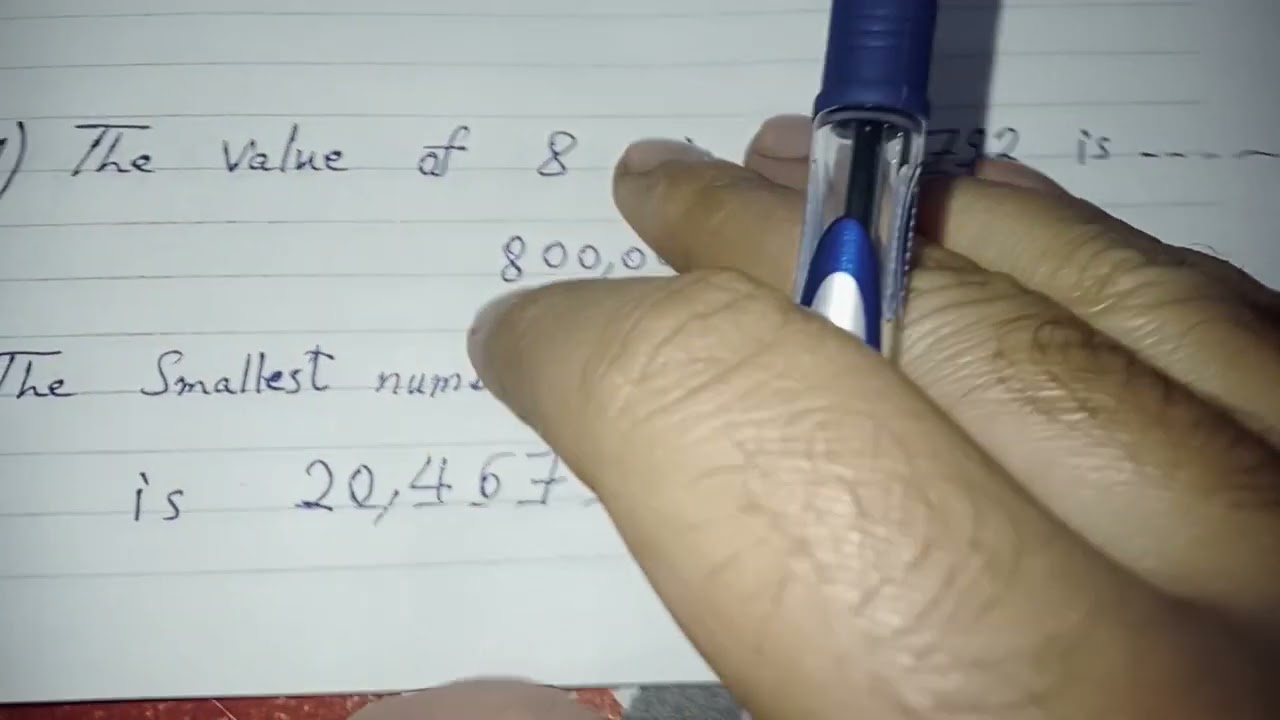 The Value of 8 792 is ----
800,0
The Smallest num
is 20,467